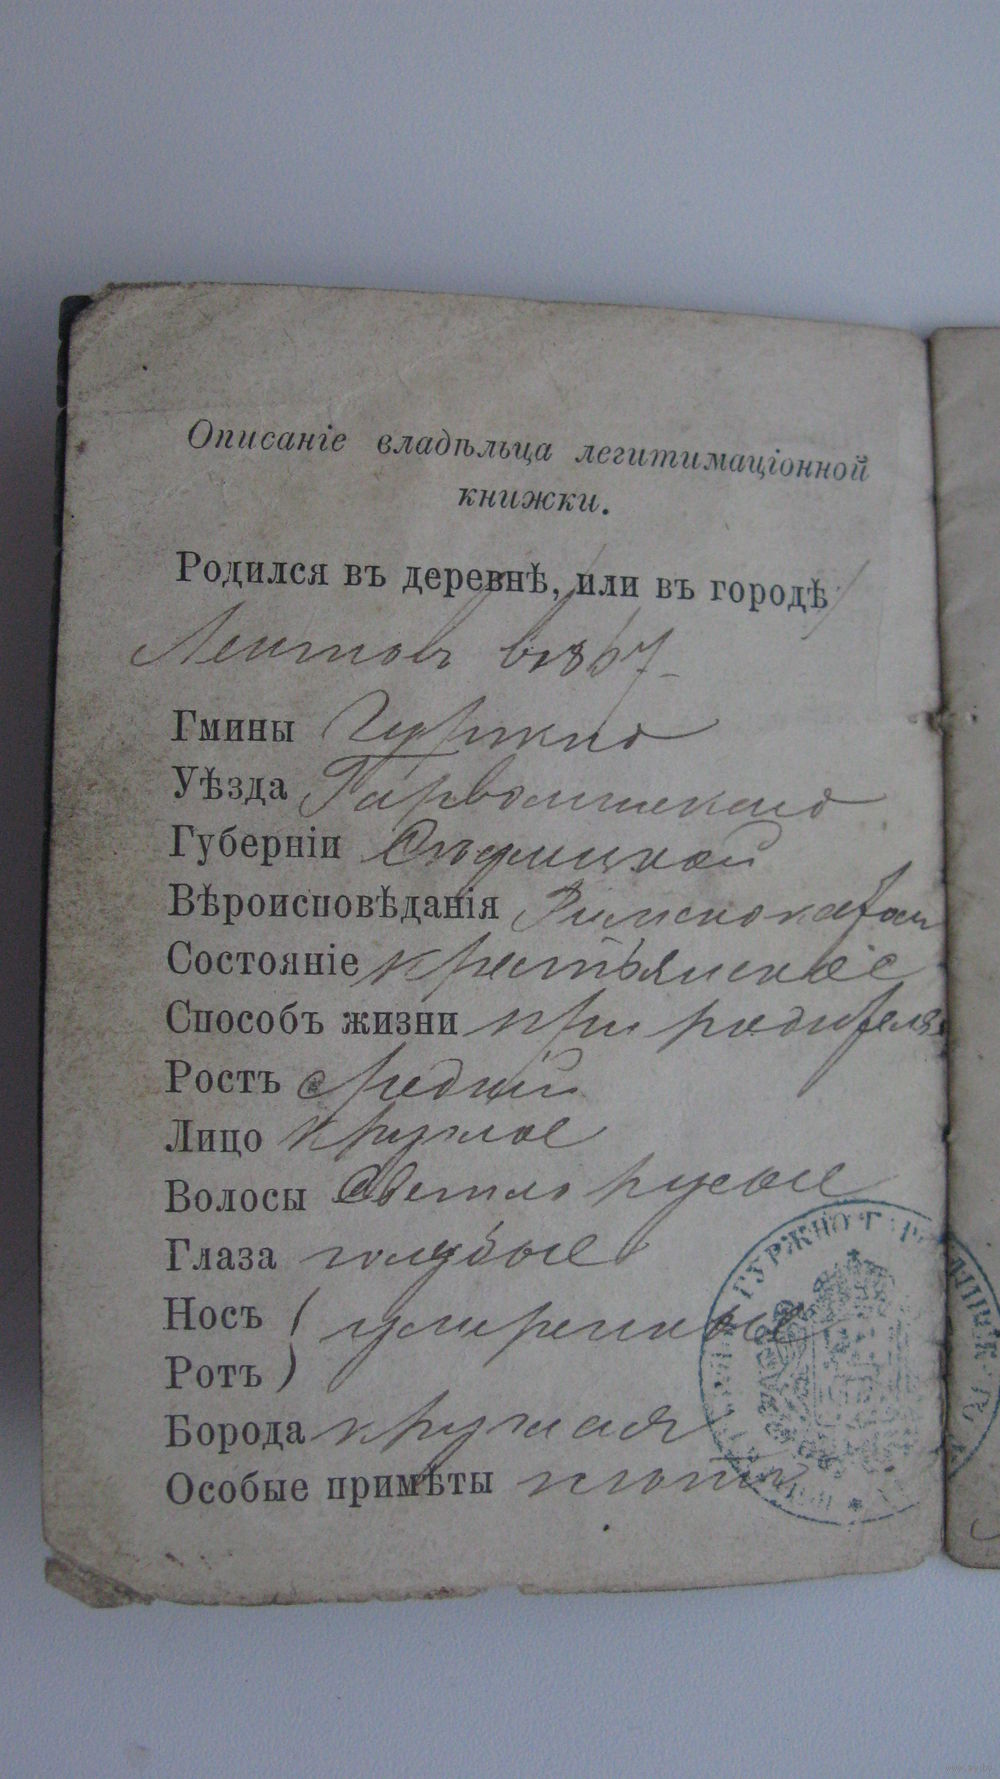 Описаніе владѣльца легитимаціонной
книжки.
Родился въ деревнѣ, или въ городѣ
въ 1867
Гмины Гуржно
Уѣзда Гарволинскаго
Губерніи Сѣдлецкой
Вѣроисповѣданія Римскокатол
Состояніе крестьянское
Способъ жизни при родителяхъ
Ростъ средній
Лицо круглое
Волосы светло русые
Глаза голубые
Носъ ( умеренные
Ротъ )
Борода круглая
Особые примѣты нетъ
ГУРЖНО